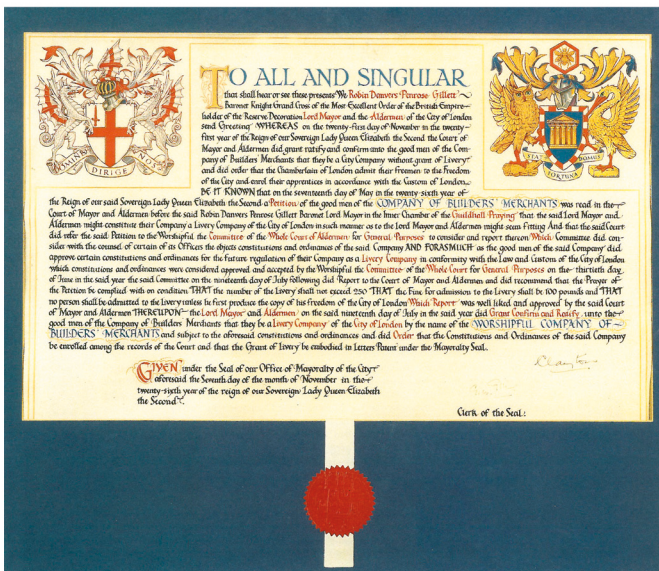 DOMINE DIRIGE NOS
STET FORTUNA DOMUS
TO ALL AND SINGULAR
that shall hear or see these presents We Robin Danvers Penrose Gillett
Baronet Knight Grand Cross of the Most Excellent Order of the British Empire
holder of the Reserve Decoration Lord Mayor and the Aldermen of the City of London
send Greeting WHEREAS on the twenty-first day of November in the twenty-
first year of the Reign of our Sovereign Lady Queen Elizabeth the Second the Court of
Mayor and Aldermen did grant ratify and confirm unto the good men of the Com
pany of Builders Merchants that they be a City Company without grant of Livery
and did order that the Chamberlain of London admit their Freemen to the Freedom
of the City and enrol their apprentices in accordance with the Custom of London
BE IT KNOWN that on the seventeenth day of May in the twenty sixth year of
the Reign of our said Sovereign Lady Queen Elizabeth the Second a Petition of the good men of the COMPANY OF BUILDERS MERCHANTS was read in the
Court of Mayor and Aldermen before the said Robin Danvers Penrose Gillett Baronet Lord Mayor in the Inner Chamber of the Guildhall Praying that the said Lord Mayor and
Aldermen might constitute their Company a Livery Company of the City of London in such manner as to the Lord Mayor and Aldermen might seem fitting And that the said Court
did refer the said Petition to the Worshipful the Committee of the Whole Court of Aldermen for General Purposes to consider and report thereon Which Committee did con
sider with the counsel of certain of its Officers the objects constitutions and ordinances of the said Company AND FORASMUCH as the good men of the said Company did
approve certain constitutions and ordinances for the future regulation of their Company as a Livery Company in conformity with the Law and Custom of the City of London
which constitutions and ordinances were considered approved and accepted by the Worshipful the Committee of the Whole Court for General Purposes on the thirtieth day
of June in the said year the said Committee on the nineteenth day of July following did Report to the Court of Mayor and Aldermen and did recommend that the Prayer of
the Petition be complied with on condition THAT the number of the Livery shall not exceed 250 THAT the Fine for admission to the Livery shall be 100 pounds and THAT
no person shall be admitted to the Livery unless he first produce the copy of his Freedom of the City of London Which Report was well liked and approved by the said Court
of Mayor and Aldermen THEREUPON the Lord Mayor and Aldermen on the said nineteenth day of July in the said year did Grant Confirm and Ratify unto the
good men of the Company of Builders Merchants that they be a Livery Company of the City of London by the name of the WORSHIPFUL COMPANY OF
BUILDERS' MERCHANTS and subject to the aforesaid constitutions and ordinances and did Order that the Constitutions and Ordinances of the said Company
be enrolled among the records of the Court and that the Grant of Livery be embodied in Letters Patent under the Mayoralty Seal.
GIVEN under the Seal of our Office of Mayoralty of the City
aforesaid the Seventh day of the month of November in the
twenty-sixth year of the reign of our Sovereign Lady Queen Elizabeth
the Second.
Clerk of the Seal: